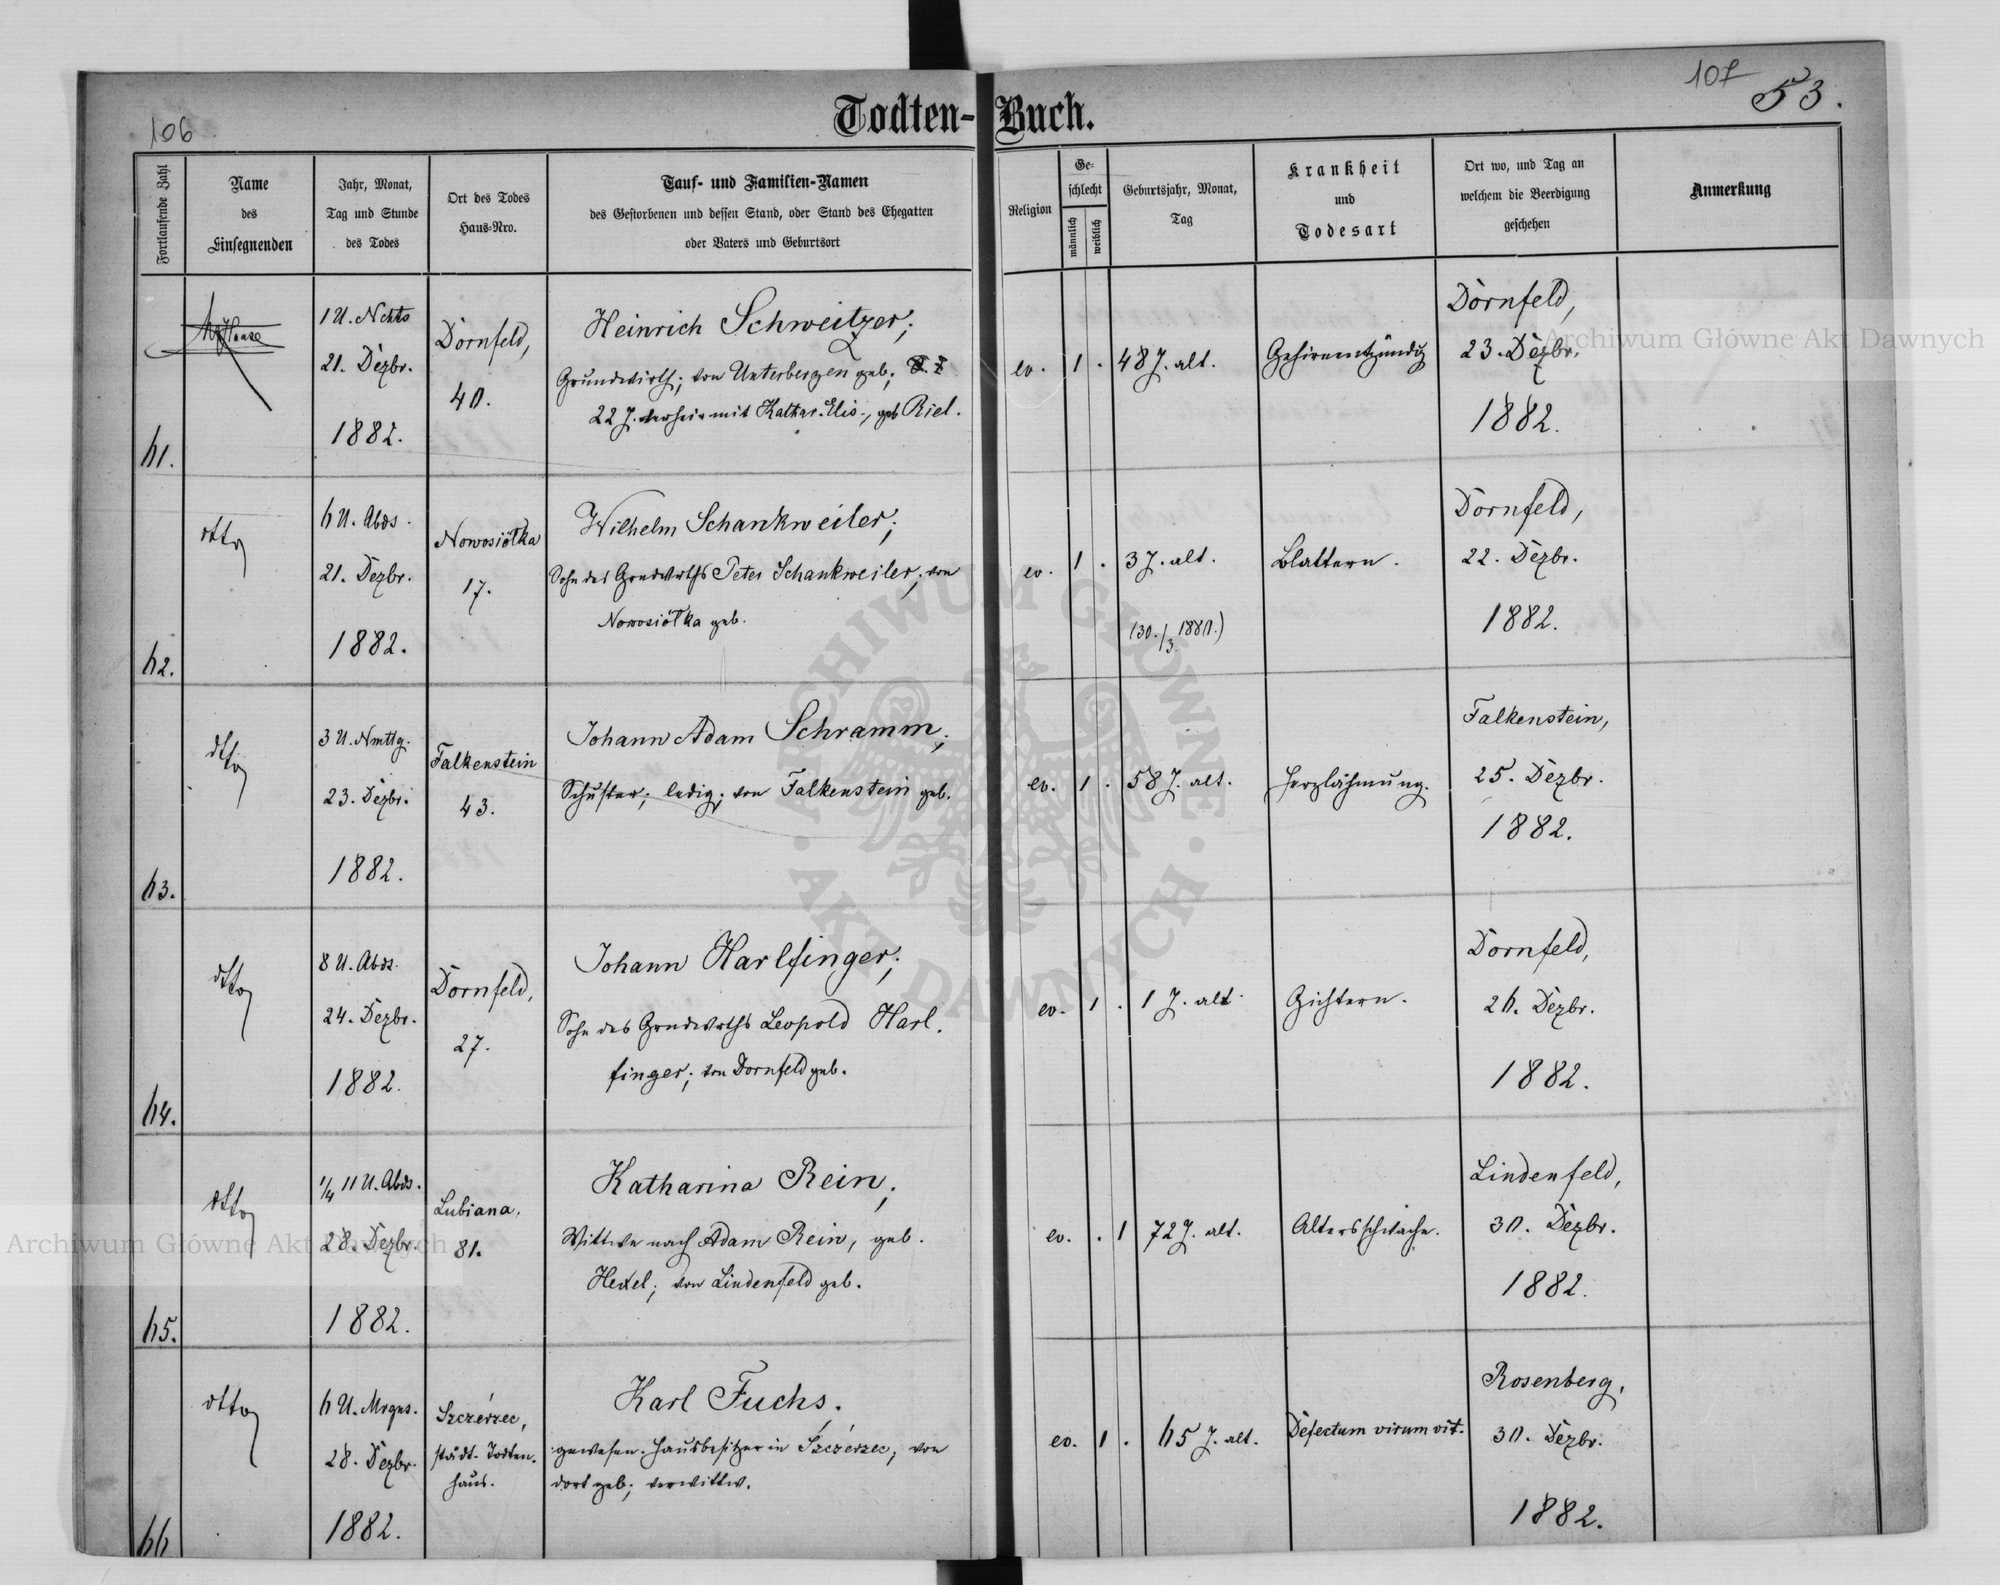 106
107
53.
Todten-Buch.
Fortlaufende Zahl
Name
des
Einsegnenden
Jahr, Monat,
Tag und Stunde
des Todes
Ort des Todes
Haus-Nro.
Tauf- und Familien-Namen
des Gestorbenen und dessen Stand, oder Stand des Ehegatten
oder Vaters und Geburtsort
Religion
Ge-
schlecht
männlich
weiblich
Geburtsjahr, Monat,
Tag
Krankheit
und
Todesart
Ort wo, und Tag an
welchem die Beerdigung
geschehen
Anmerkung
61.
1 U. Nchts
21. Dezbr.
1882.
Dornfeld,
40.
Heinrich Schweitzer;
Grundwirth; von Unterbergen geb.;
22 J. verheir mit Kathar. Elis., geb Riel.
ev.
1 .
48 J. alt.
Gehirnentzündg
Dornfeld,
23. Dezbr.
1882.
62.
dtto
6 U. Abds.
21. Dezbr.
1882.
Nowosiółka
17.
Wilhelm Schankweiler;
Sohn des Grndwrths Peter Schankweiler; von
Nowosiółka geb.
ev.
1 .
3 J. alt.
(30./3. 1880.)
Blattern.
Dornfeld,
22. Dezbr.
1882.
63.
dtto
3 U. Nmttg.
23. Dezbr.
1882.
Falkenstein
43.
Johann Adam Schramm;
Schuster; ledig; von Falkenstein geb.
ev.
1 .
58 J. alt.
Herzlähmung.
Falkenstein,
25. Dezbr.
1882.
64.
dtto
8 U. Abds.
24. Dezbr.
1882.
Dornfeld,
27.
Johann Harlfinger;
Sohn des Grndwrths Leopold Harl-
finger; von Dornfeld geb.
ev.
1 .
1 J. alt.
Gichtern.
Dornfeld,
26. Dezbr.
1882.
65.
dtto
1/4 11 U. Abds.
28. Dezbr.
1882.
Lubiana,
81.
Katharina Rein;
Wittwe nach Adam Rein, geb.
Hexel; von Lindenfeld geb.
ev.
. 1
72 J. alt.
Altersschwäche.
Lindenfeld,
30. Dezbr.
1882.
66
dtto
6 U. Mrgns.
28. Dezbr.
1882.
Szczérzec,
städt. Todten-
haus.
Karl Fuchs.
gewesen. Hausbesitzer in Szczérzec; von
dort geb.; verwittw.
ev.
1 .
65 J. alt.
Defectum virum vit.
Rosenberg,
30. Dezbr.
1882.
Archiwum Główne Akt Dawnych
Archiwum Główne Akt Dawnych
ARCHIWUM GŁÓWNE
AKT DAWNYCH